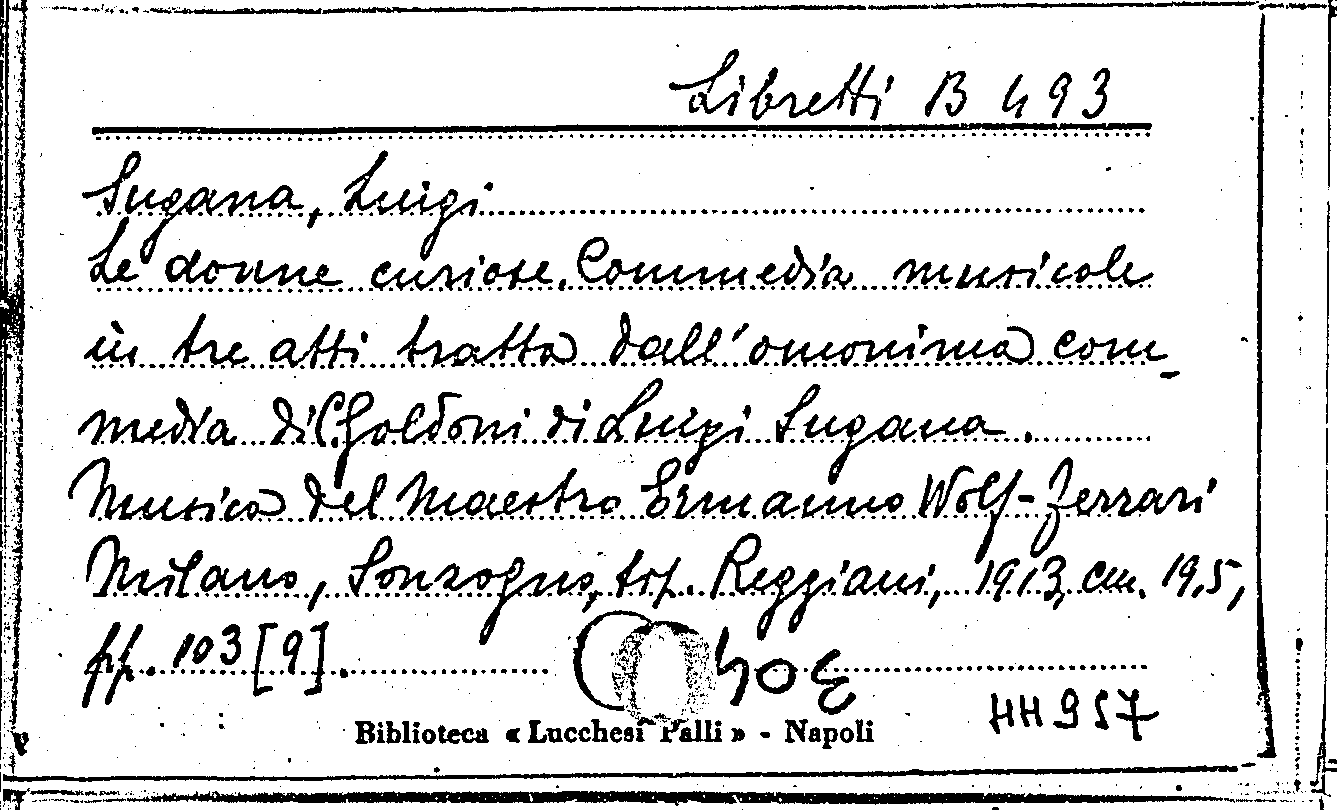 Libretti B 493
Sugana, Luigi
Le donne curiose. Commedia musicale
in tre atti tratta dall'omonima com-
media di C. Goldoni di Luigi Sugana.
Musica del Maestro Ermanno Wolf-Ferrari
Milano, Sonzogno, tip. Reggiani, 1913, cm. 19,5,
pp. 103 [9].
HH 957
Biblioteca « Lucchesi Palli » - Napoli